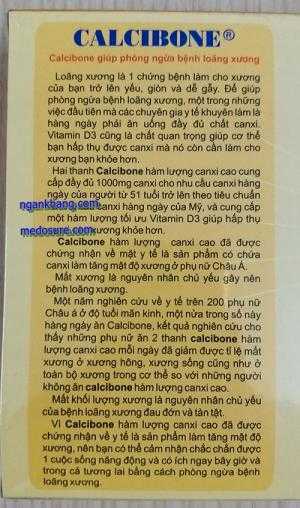 CALCIBONE®
Calcibone giúp phòng ngừa bệnh loãng xương
Loãng xương là 1 chứng bệnh làm cho xương
của bạn trở lên yếu, giòn và dễ gẫy. Để giúp
phòng ngừa bệnh loãng xương, một trong những
việc đầu tiên mà các chuyên gia y tế khuyên làm là
hàng ngày phải ăn uống đầy đủ chất canxi.
Vitamin D3 cũng là chất quan trọng giúp cơ thể
bạn hấp thụ được canxi mà nó còn cần làm cho
xương bạn khỏe hơn.
Hai thanh Calcibone hàm lượng canxi cao cung
cấp đầy đủ 1000mg canxi cho nhu cầu canxi hàng
ngày của người từ 51 tuổi trở lên theo tiêu chuẩn
ngankbang.com canxi hàng ngày của Mỹ, và cung cấp
một hàm lượng tối ưu Vitamin D3 giúp hấp thụ
medosure.com xương khỏe hơn.
Calcibone hàm lượng canxi cao đã được
chứng nhận về mặt y tế là sản phẩm có chứa
canxi làm tăng mật độ xương ở phụ nữ Châu Á.
Mất xương là nguyên nhân chủ yếu gây nên
bệnh loãng xương.
Một năm nghiên cứu về y tế trên 200 phụ nữ
Châu á ở độ tuổi mãn kinh, một nửa trong số này
hàng ngày ăn Calcibone, kết quả nghiên cứu cho
thấy những phụ nữ ăn 2 thanh calcibone hàm
lượng canxi cao mỗi ngày đã giảm được tỉ lệ mất
xương ở xương hông, xương sống cũng như ở
toàn bộ xương trong cơ thể so với những người
không ăn calcibone hàm lượng canxi cao.
Mất khối lượng xương là nguyên nhân chủ yếu
của bệnh loãng xương đau đớn và tàn tật.
Vì Calcibone hàm lượng canxi cao đã được
chứng nhận về y tế là sản phẩm làm tăng mật độ
xương, nên bạn có thể cảm nhận chắc chắn được
1 cuộc sống năng động và có ích ngay bây giờ và
trong cả tương lai bằng cách phòng ngừa bệnh
loãng xương.